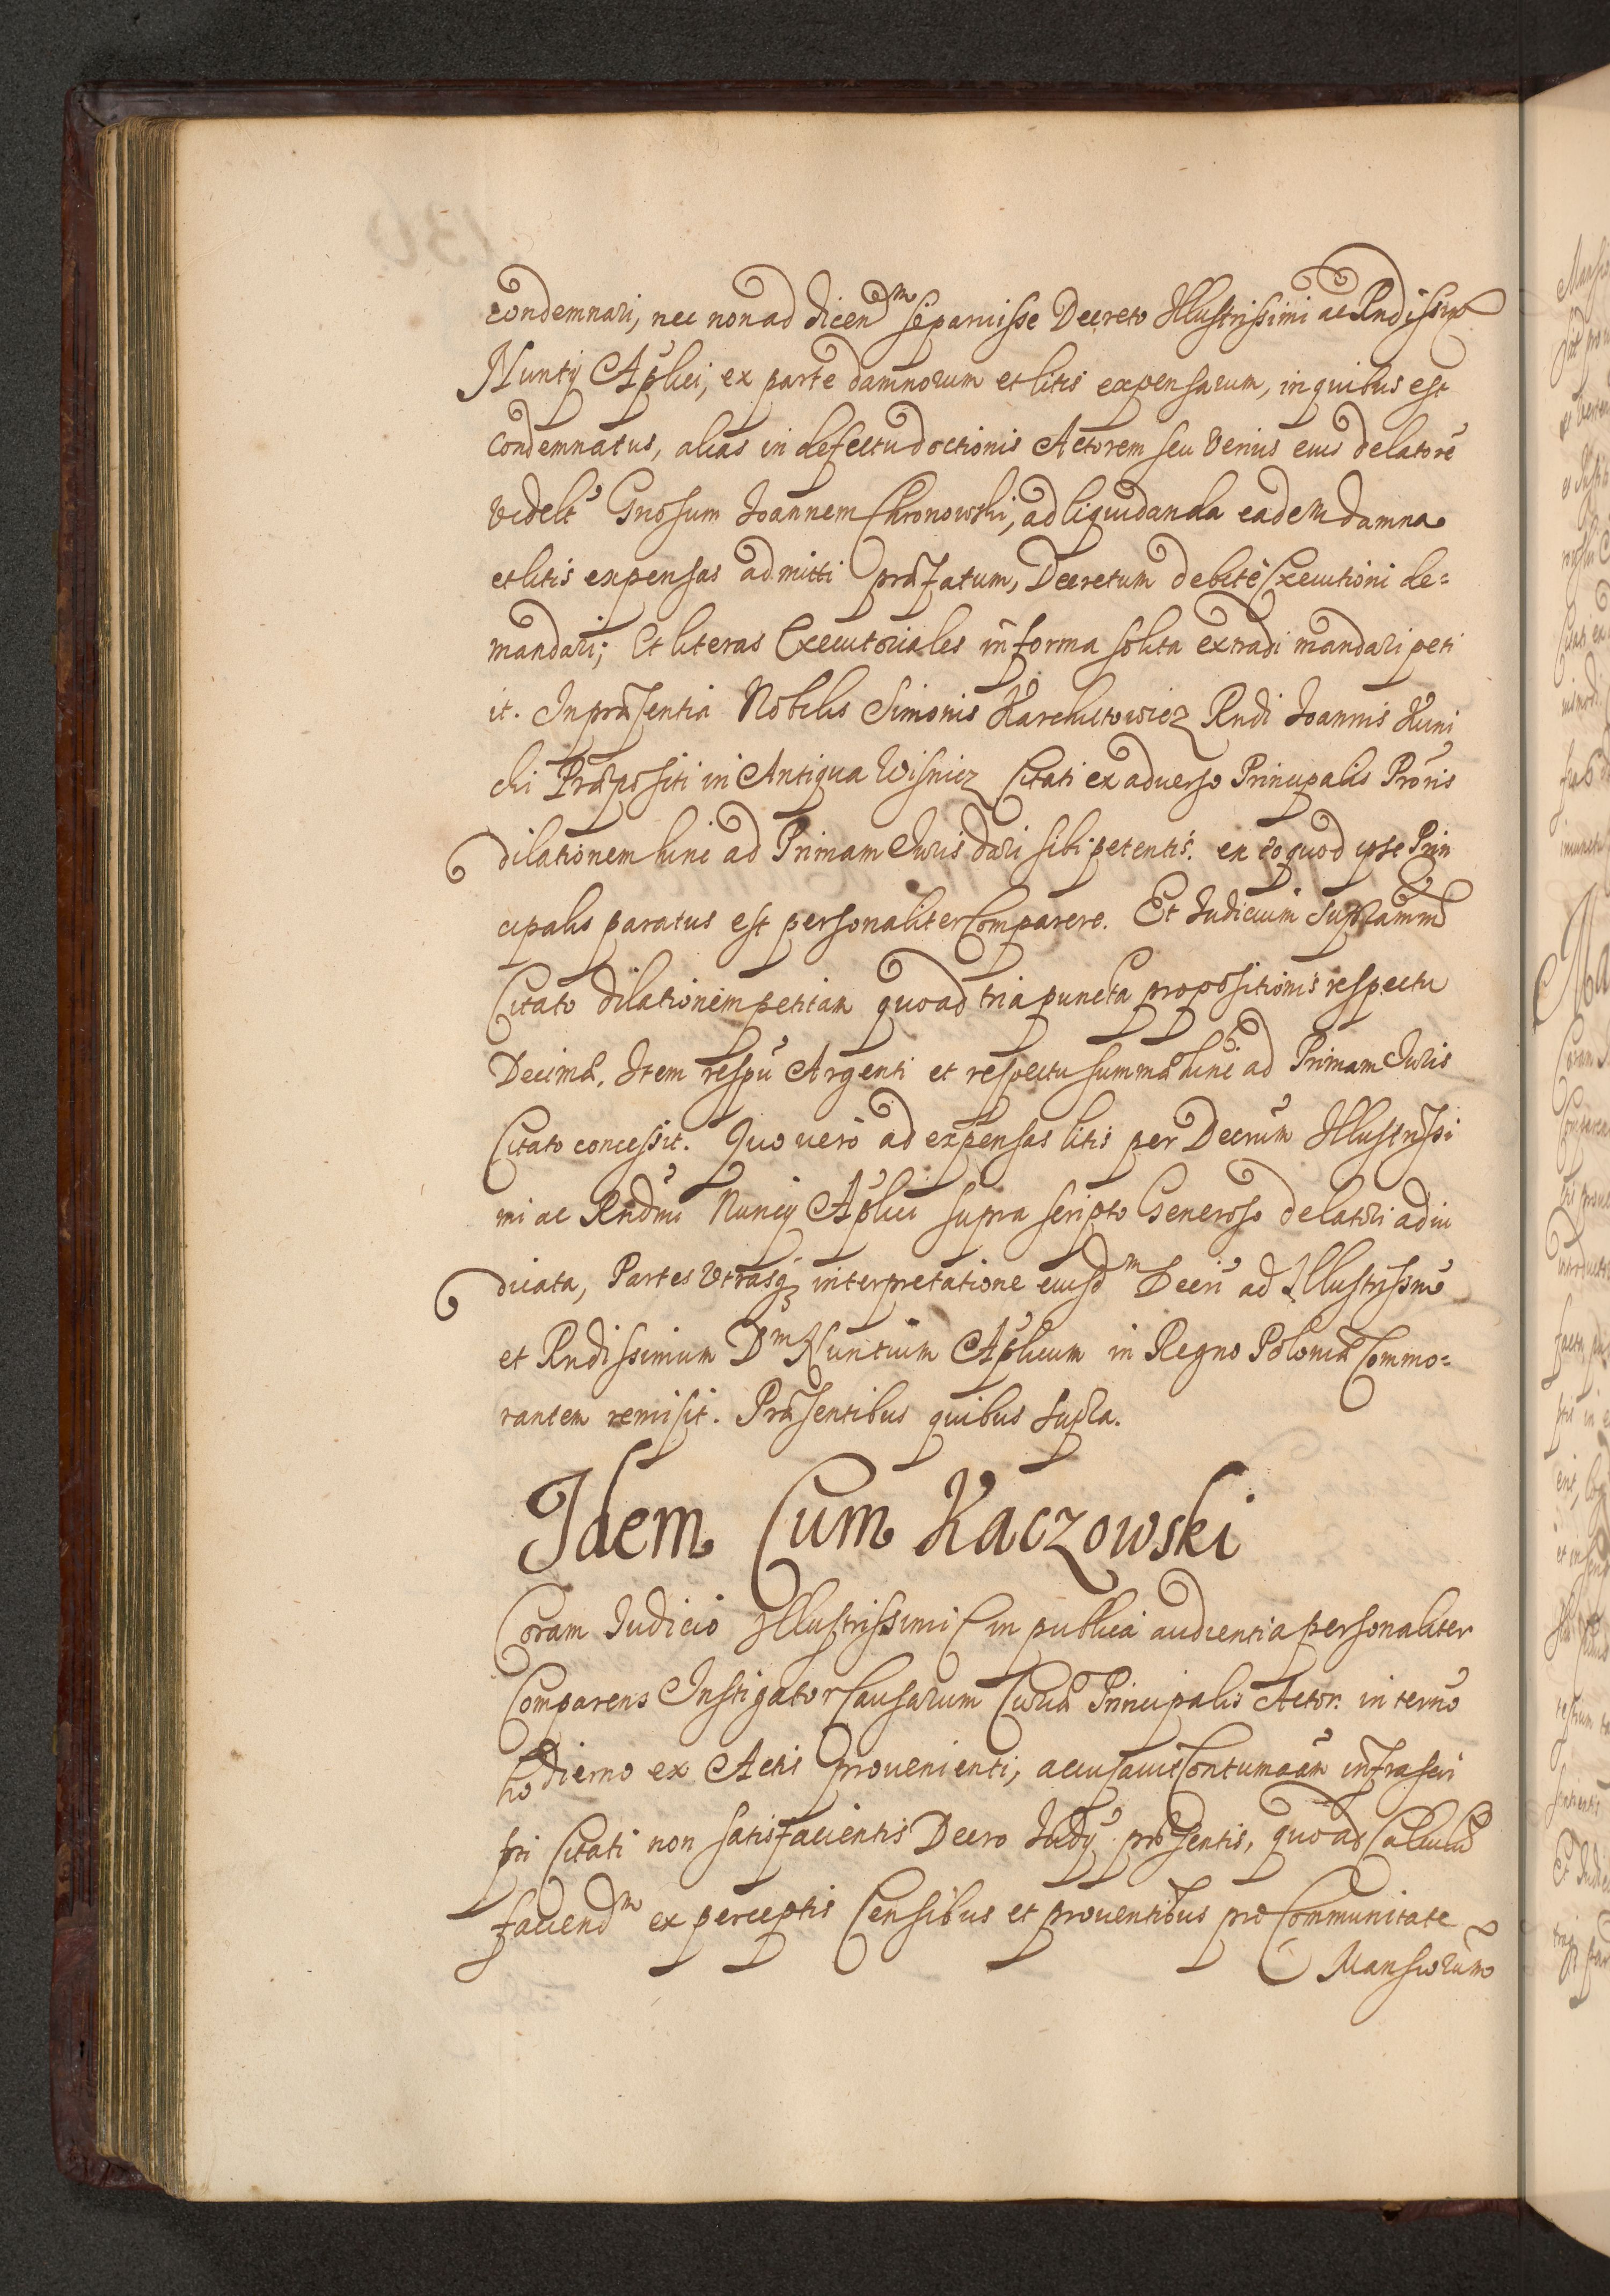 condemnari, nec non ad dicend<sup>m</sup> se paruisse Decreto Illustrissimi ac Rndissimi
Nuntij Aplici, ex parte damnorum et litis expensarum, in quibus est
condemnatus, alias in defectu doctionis Actorem seu verius eius delatorē
videlt Gnosum Joannem Chronowski, ad liquidanda eadem damna
et litis expensas admitti præfatum, Decretum debitè Executioni de=
mandari; Et literas Executoriales in forma solita extradi mandari peti
it. In præsentia Nobilis Simonis Karchutowicz Rndi Joannis Kuni
chi Præpositi in Antiqua Wisnicz Citati ex aduerso Principalis Prōris
dilationem hinc ad Primam Iuris dari sibi petentis. ex eo quod ipse Prin
cipalis paratus est personaliter Comparere. Et Iudicium
Citato dilationem petitam quoad tria puncta propositionis respectu
Decimæ, Item respū Argenti et respectu summæ hinc ad Primam Iuris
Citato concessit. Quo vero ad expensas litis per Decrūm Illustrissi
mi ac Rndmi Nuncij Aplici supra scripto Generoso delatori adiu
dicata, Partes utrasq; interpretatione eiusd<sup>m</sup> Decri ad Illustrissimū
et Rndissimum D<sup>m</sup> Nuntium Aplicum in Regno Poloniæ Commo=
rantem remisit. Præsentibus quibus supra.
Idem Cum Kaczowski
Coram Iudicio Illustrissimi &c in publica audientia personaliter
Comparens Instigator Causarum Curiæ Principalis Actor. in termo
hodierno ex Actis proueniente, accusauit Contumaciam infrascri
pti Citati non satisfacientis Decro Iudij præsentis, quoad Calculū
faciend<sup>m</sup> ex perceptis Censibus et prouentibus pro Communitate
Mansiorum